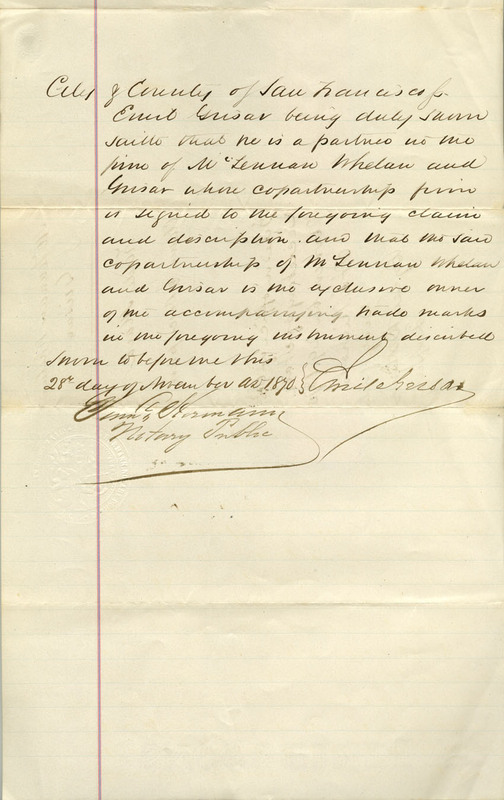 City & County of San Francisco ss
Emil Grisar being duly sworn
saith that he is a partner in the
firm of McLennan Whelan and
Grisar whose copartnership firm
is signed to the foregoing claim
and description. and that the said
copartnership of McLennan Whelan
and Grisar is the exclusive owner
of the accompanying trade marks
in the foregoing instrument described
Sworn to before me this
28th day of November AD 1870 } Emil Grisar
Notary Public